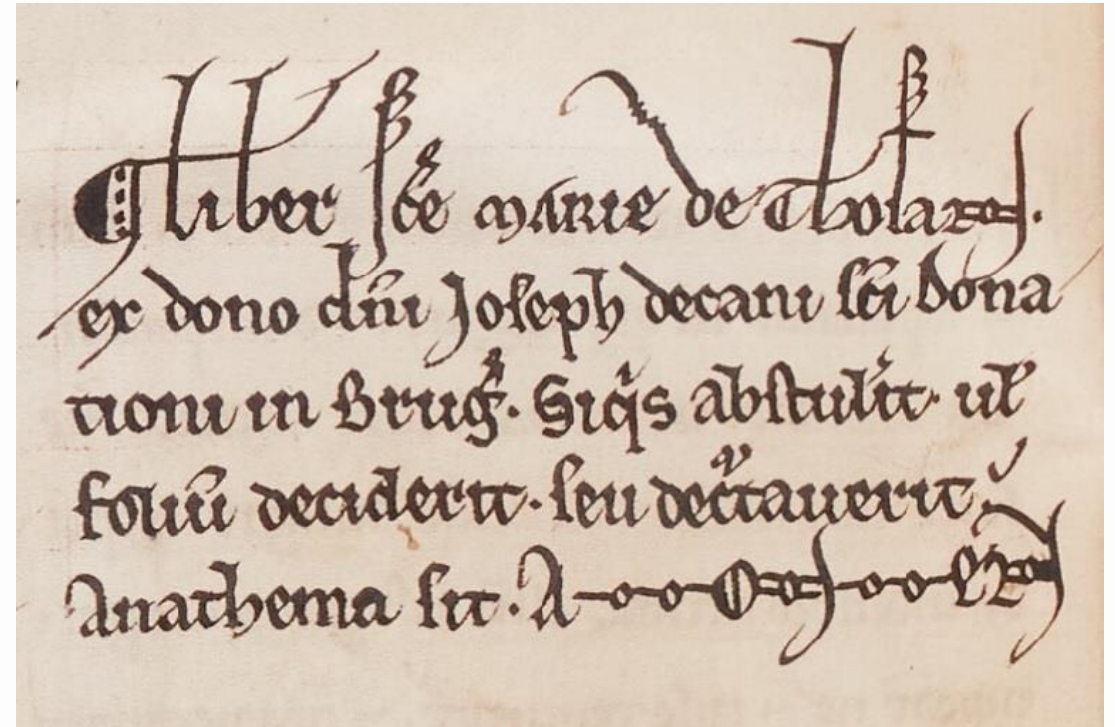 ¶ Liber sc̄e marie de Thosan.
ex dono dn̄i Joseph decani sc̄i Dona
tiani in Brug̃. Siqͥs abstulͥit. ul̃
foliū deciderit. seu dec͛taverit
Anathema sit. A–o–o–M–o–o–EN